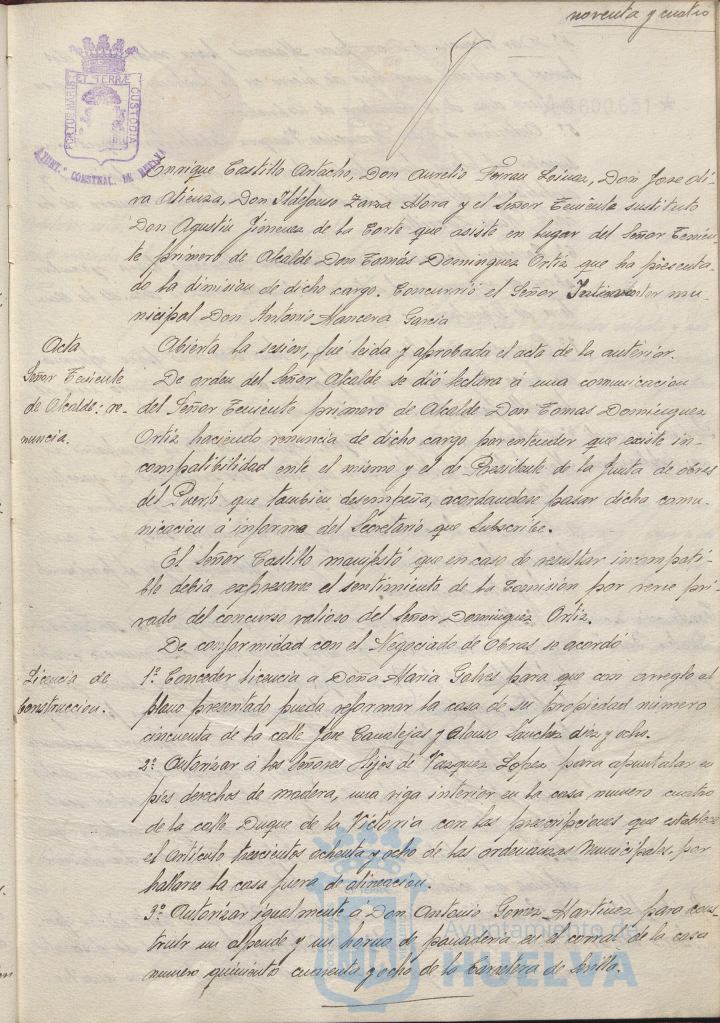 noventa y cuatro
PORTUS MARIS ET TERRÆ CUSTODIA
AYUNT.º CONSTNAL. DE HUELVA
Enrique Castillo Artacho, Don Aurelio Ferrau Loinaz, Don Jose Oli-
va Atienza, Don Ildefonso Zarza Mora y el Señor Teniente sustituto
Don Agustin Jimenez de la Corte que asiste en lugar del Señor Tenien-
te primero de Alcalde Don Tomás Dominguez Ortiz que ha presenta-
do la dimision de dicho cargo. Concurrió el Señor Interventor mu-
nicipal Don Antonio Mancera Garcia
Acta
Abierta la sesion, fue leida y aprobada el acta de la anterior.
Señor Teniente
de Alcalde: re-
nuncia.
De orden del Señor Alcalde se dió lectura á una comunicacion
del Señor Teniente primero de Alcalde Don Tomas Dominguez
Ortiz haciendo renuncia de dicho cargo por entender que existe in-
compatibilidad ente el mismo y el de Presidente de la Junta de obras
del Puerto que tambien desempeña, acordandose pasar dicha comu-
nicacion á informe del Secretario que Subscribe.
El Señor Castillo manifestó que en caso de resultar incompati-
ble debia expresarse el sentimiento de la Comision por verse pri-
vado del concurso valioso del Señor Dominguez Ortiz.
De conformidad con el Negociado de Obras se acordó
Licencia de
Construccion.
1º Conceder licencia a Doña Maria Galves para que con arreglo al
plano presentado pueda reformar la casa de su propiedad número
cincuenta de la calle Jose Canalejas y Alonso Sanchez diez y ocho.
2º Autorizar á los Señores Hijos de Vazquez Lopez para apuntalar con
pies derechos de madera, una viga interior en la casa numero cuatro
de la calle Duque de la Victoria con las prescripciones que establece
el articulo trescientos ochenta y ocho de las ordenanzas Municipales, por
hallarse la casa fuera de alineacion.
3º Autorizar igualmente á Don Antonio Gomez Martinez para cons-
truir un alpende y un horno de panaderia en el corral de la casa
numero quiniento cuarenta y ocho de la Carretera de Sevilla.
Ayuntamiento de
HUELVA